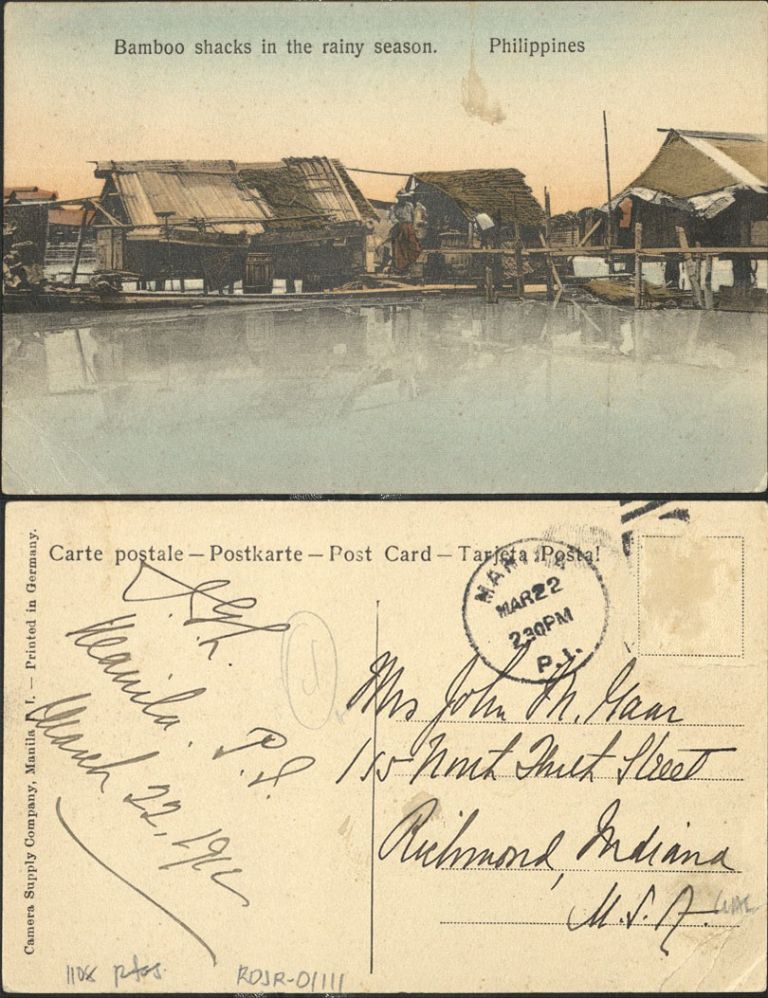 Bamboo shacks in the rainy season. Philippines
Carte postale — Postkarte — Post Card — Tarjeta Postal
Camera Supply Company, Manila P. I. — Printed in Germany.
MANILA
MAR 22
2 30 PM
P. I.
Manila. P. I.
March 22, 19
Mrs John M. Gaar
North Street
Richmond, Indiana
U. S. A.
1108 ptas.
ROJR-01111